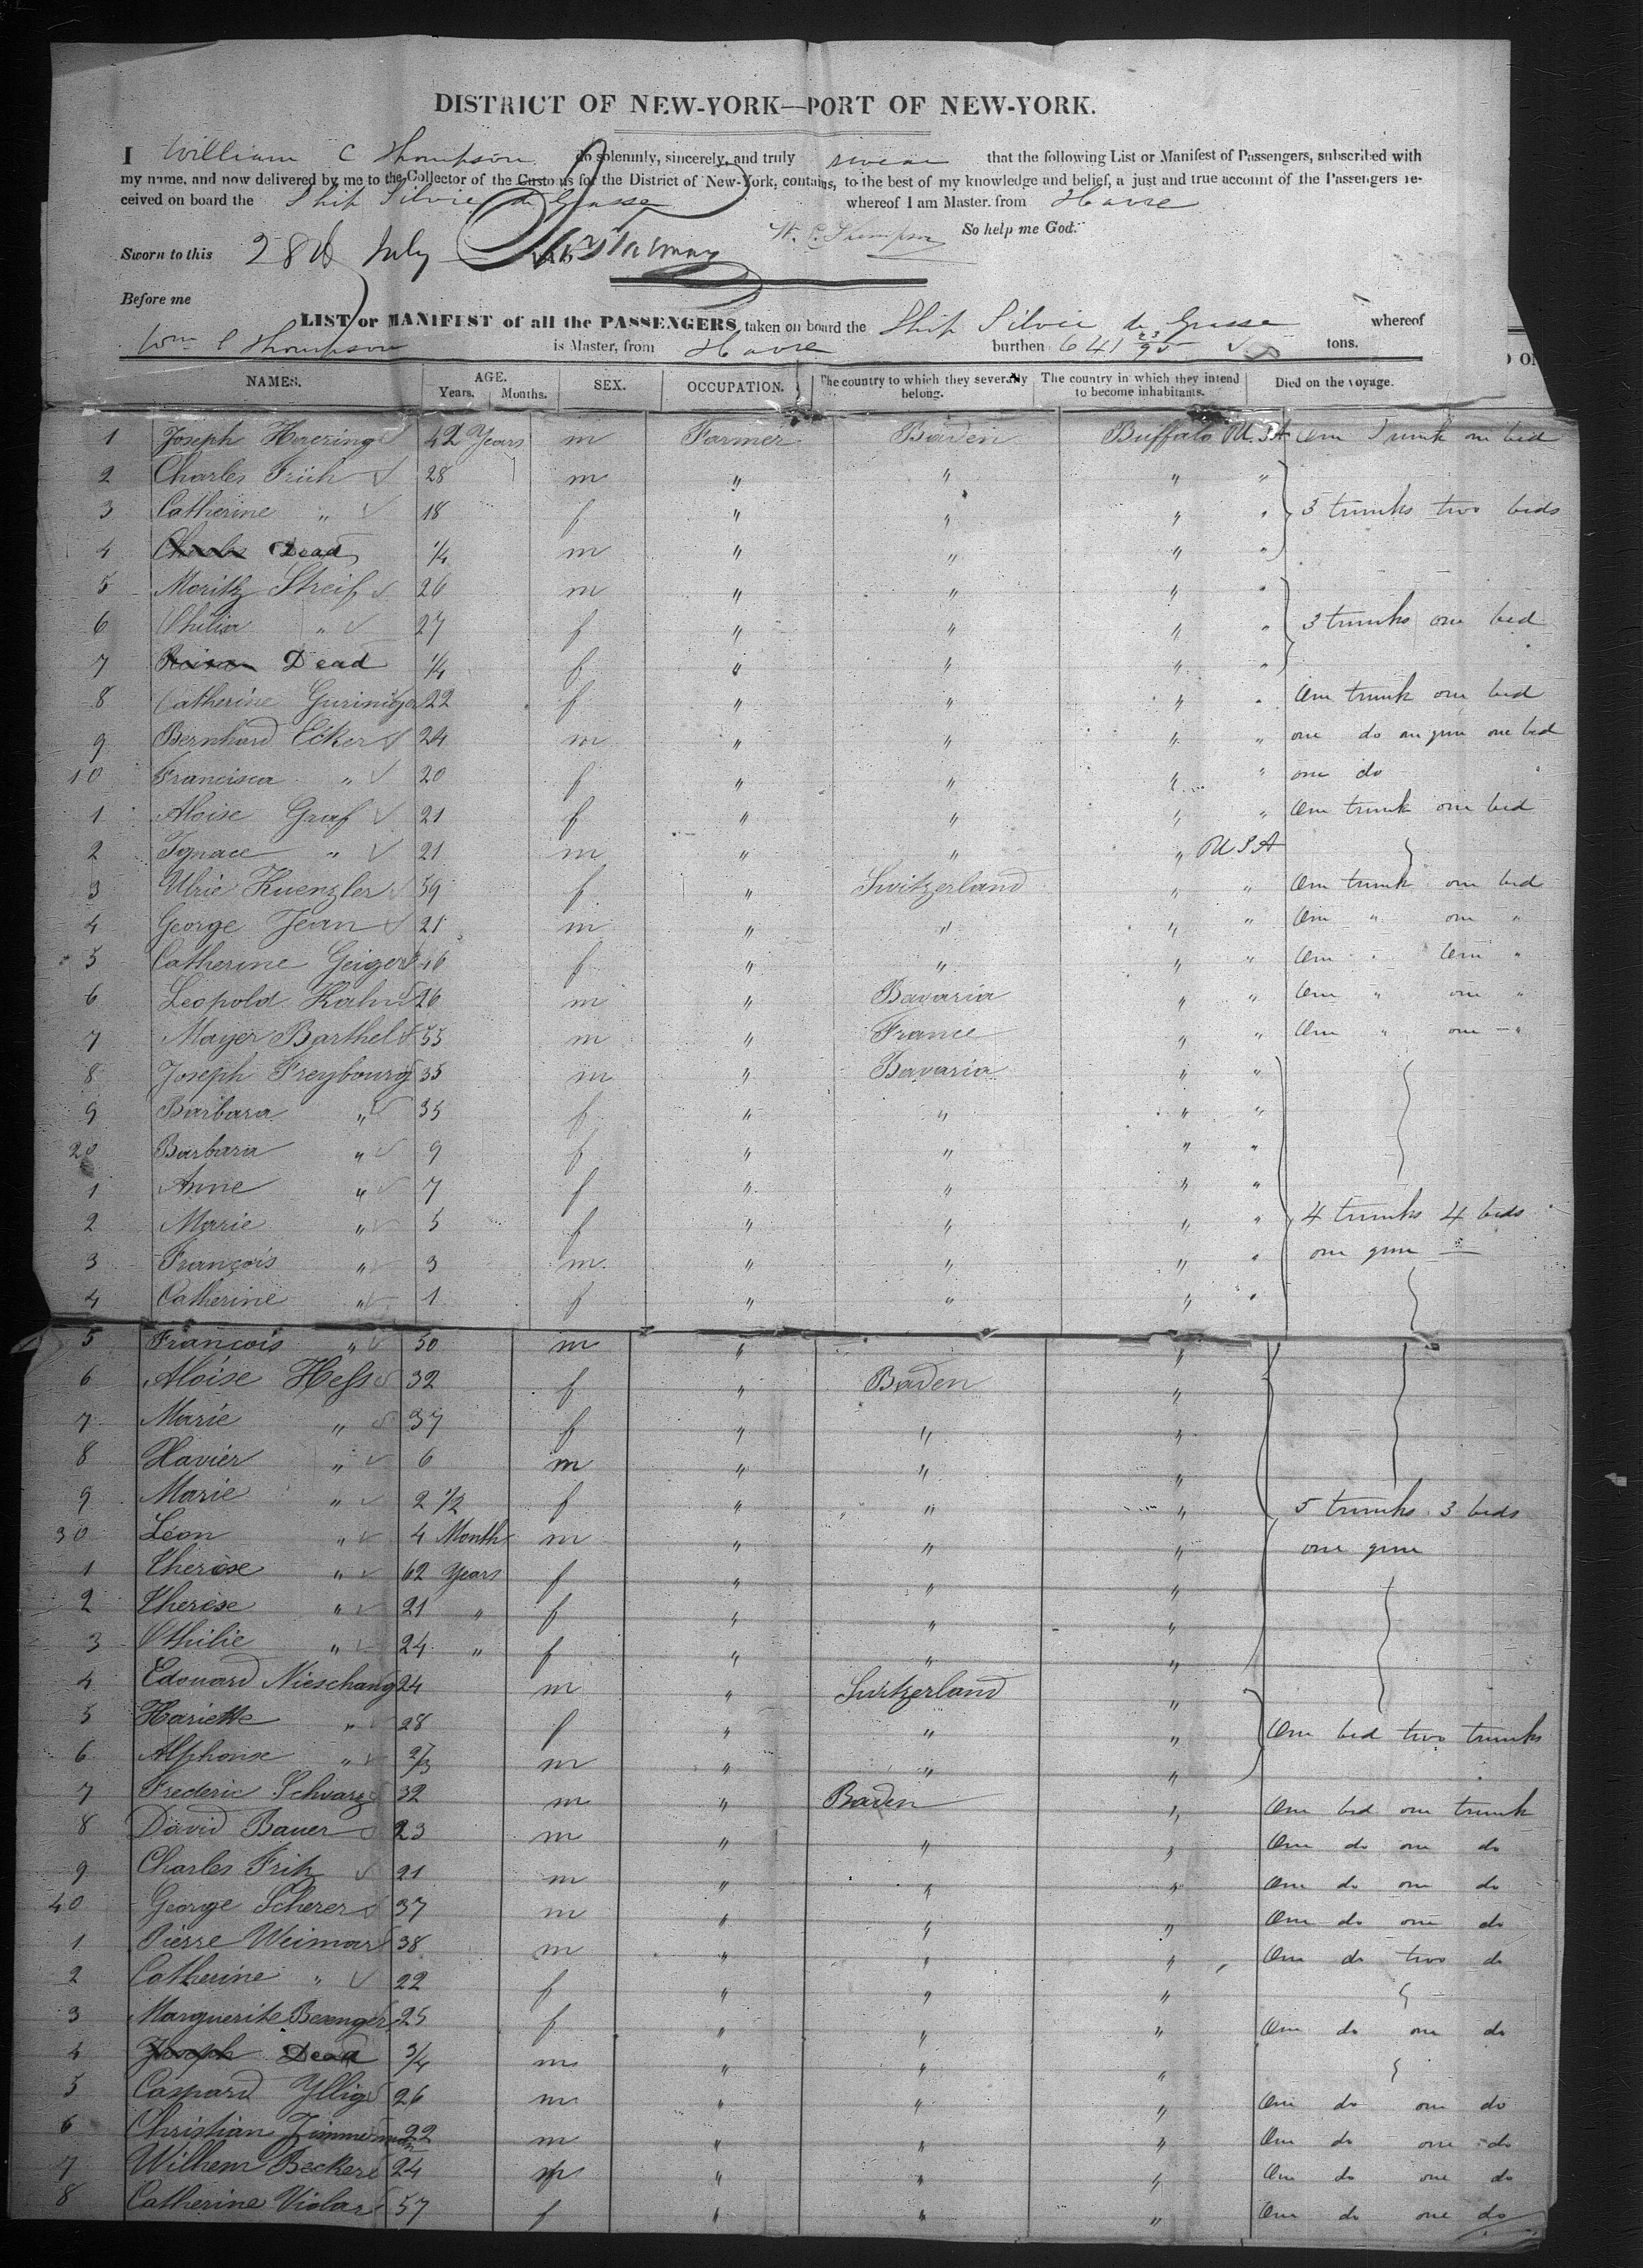 DISTRICT OF NEW-YORK—PORT OF NEW-YORK.
I William C Thompson do solemnly, sincerely, and truly swear that the following List or Manifest of Passengers, subscribed with
my name, and now delivered by me to the Collector of the Customs for the District of New-York, contains, to the best of my knowledge and belief, a just and true account of the Passengers re-
ceived on board the Ship Silvie de Grasse whereof I am Master, from Havre
W. C. Thompson So help me God.
Sworn to this 28th July
Before me
LIST or MANIFEST of all the PASSENGERS taken on board the Ship Silvie de Grasse whereof
Wm C Thompson is Master, from Havre burthen 641 23/95 tons.
NAMES. AGE. Years. Months. SEX. OCCUPATION. The country to which they severally belong. The country in which they intend to become inhabitants. Died on the voyage.
1 Joseph Haering 42 Years m Farmer Baden Buffalo U.S.A One Trunk one bed
2 Charles Früh 28 m " " " "
3 Catherine " 18 f " " " " 3 trunks two beds
4 Charles Dead 1/4 m " " " "
5 Moritz Streif 26 m " " " "
6 Othilia " 27 f " " " " 3 trunks one bed
7 Dead 1/4 f " " " "
8 Catherine 22 f " " " " One trunk one bed
9 Bernhard Ecker 24 m " " " " one do one gun one bed
10 Francisca " 20 f " " " " one do
1 Aloise Graf 21 f " " " " One trunk one bed
2 Ignace " 21 m " " " U S A
3 Ulric Kuenzler 59 f " Switzerland " " One trunk one bed
4 George Jean 21 m " " " " One " one "
5 Catherine Geiger 46 f " " " " One " One "
6 Leopold Kahn 26 m " Bavaria " " One " one "
7 Mayer Barthel 55 m " France " " One " one "
8 Joseph Freybourg 35 m " Bavaria " "
9 Barbara " 35 f " " " "
20 Barbara " 9 f " " " "
1 Anne " 7 f " " " "
2 Marie " 5 f " " " " 4 trunks 4 beds
3 François " 3 m " " " " one gun
4 Catherine " 1 f " " " "
5 François " 50 m " "
6 Aloise Hess 32 f " Baden "
7 Marie " 37 f " " "
8 Xavier " 6 m " " "
9 Marie " 2 1/2 f " " " 5 trunks 3 beds
30 Léon " 4 Month m " " " one gun
1 Therèse " 62 years f " " "
2 Therèse " 21 " f " " "
3 Othilie " 24 " f " " "
4 Edouard Nieschang 24 m " Switzerland "
5 Hariette " 28 f " " " One bed two trunks
6 Alphonse " 2/3 m " " "
7 Frederic Schwarz 32 m " Baden " One bed one trunk
8 David Bauer 23 m " " " One do one do
9 Charles Fritz 21 m " " " One do one do
40 George Scherer 37 m " " " One do one do
1 Pierre Weimar 38 m " " " One do two do
2 Catherine " 22 f " " "
3 Marguerite 25 f " " " One do one do
4 Joseph Dead 3/4 m " " "
5 Caspard Yllig 26 m " " " One do one do
6 Christian Zimmerman 22 m " " " One do one do
7 Wilhem Becker 24 " " " One do one do
8 Catherine Violar 57 f " " " One do one do